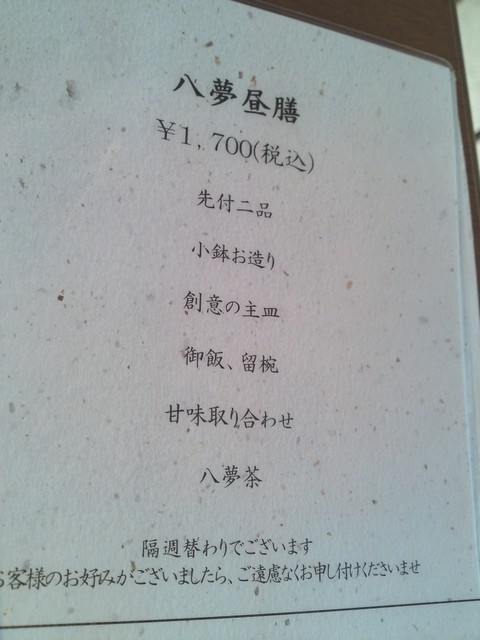 八夢昼膳
￥1,700(税込)
先付二品
小鉢お造り
創意の主皿
御飯、留椀
甘味取り合わせ
八夢茶
隔週替わりでございます
お客様のお好みがございましたら、ご遠慮なくお申し付けくださいませ